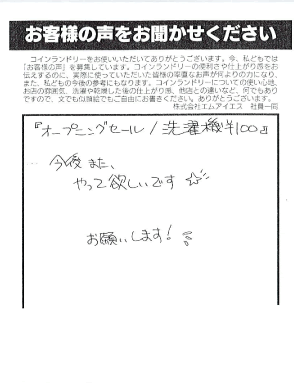 お客様の声をお聞かせください
コインランドリーをお使いいただいてありがとうございます。今、私どもでは
「お客様の声」を募集しています。コインランドリーの便利さや仕上がり感をお
伝えするのに、実際に使っていただいた皆様の率直なお声が何よりの力になり、
また、私どもの今後の参考にもなります。コインランドリーについての使い心地、
お店の雰囲気、洗濯や乾燥した後の仕上がり感、他店との違いなど、何でもあり
ですので、文でも似顔絵でもご自由にお書きください。ありがとうございます。
株式会社エムアイエス 社員一同
『オープニングセール / 洗濯機¥100』
今後また、
やって欲しいです ☆
お願いします!